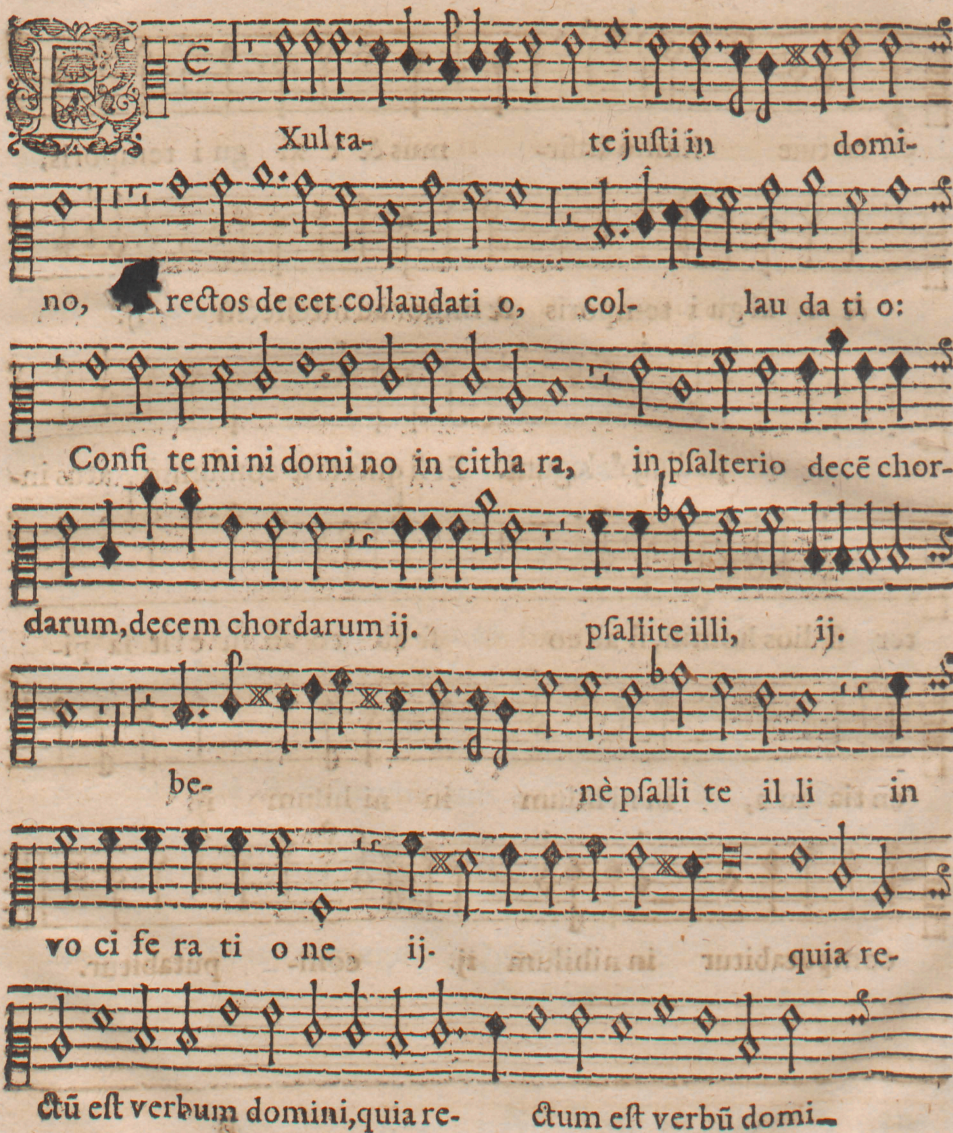 EXul ta- te juſti in domi-
no, rectos de cet collaudati o, col- lau da ti o:
Confi te mi ni domi no in citha ra, in pſalterio decē chor-
darum, decem chordarum ij. pſallite illi, ij.
be- nè pſalli te il li in
vo ci fe ra ti o ne ij. quia re-
ctū eſt verbum domini, quia re- ctum eſt verbū domi-